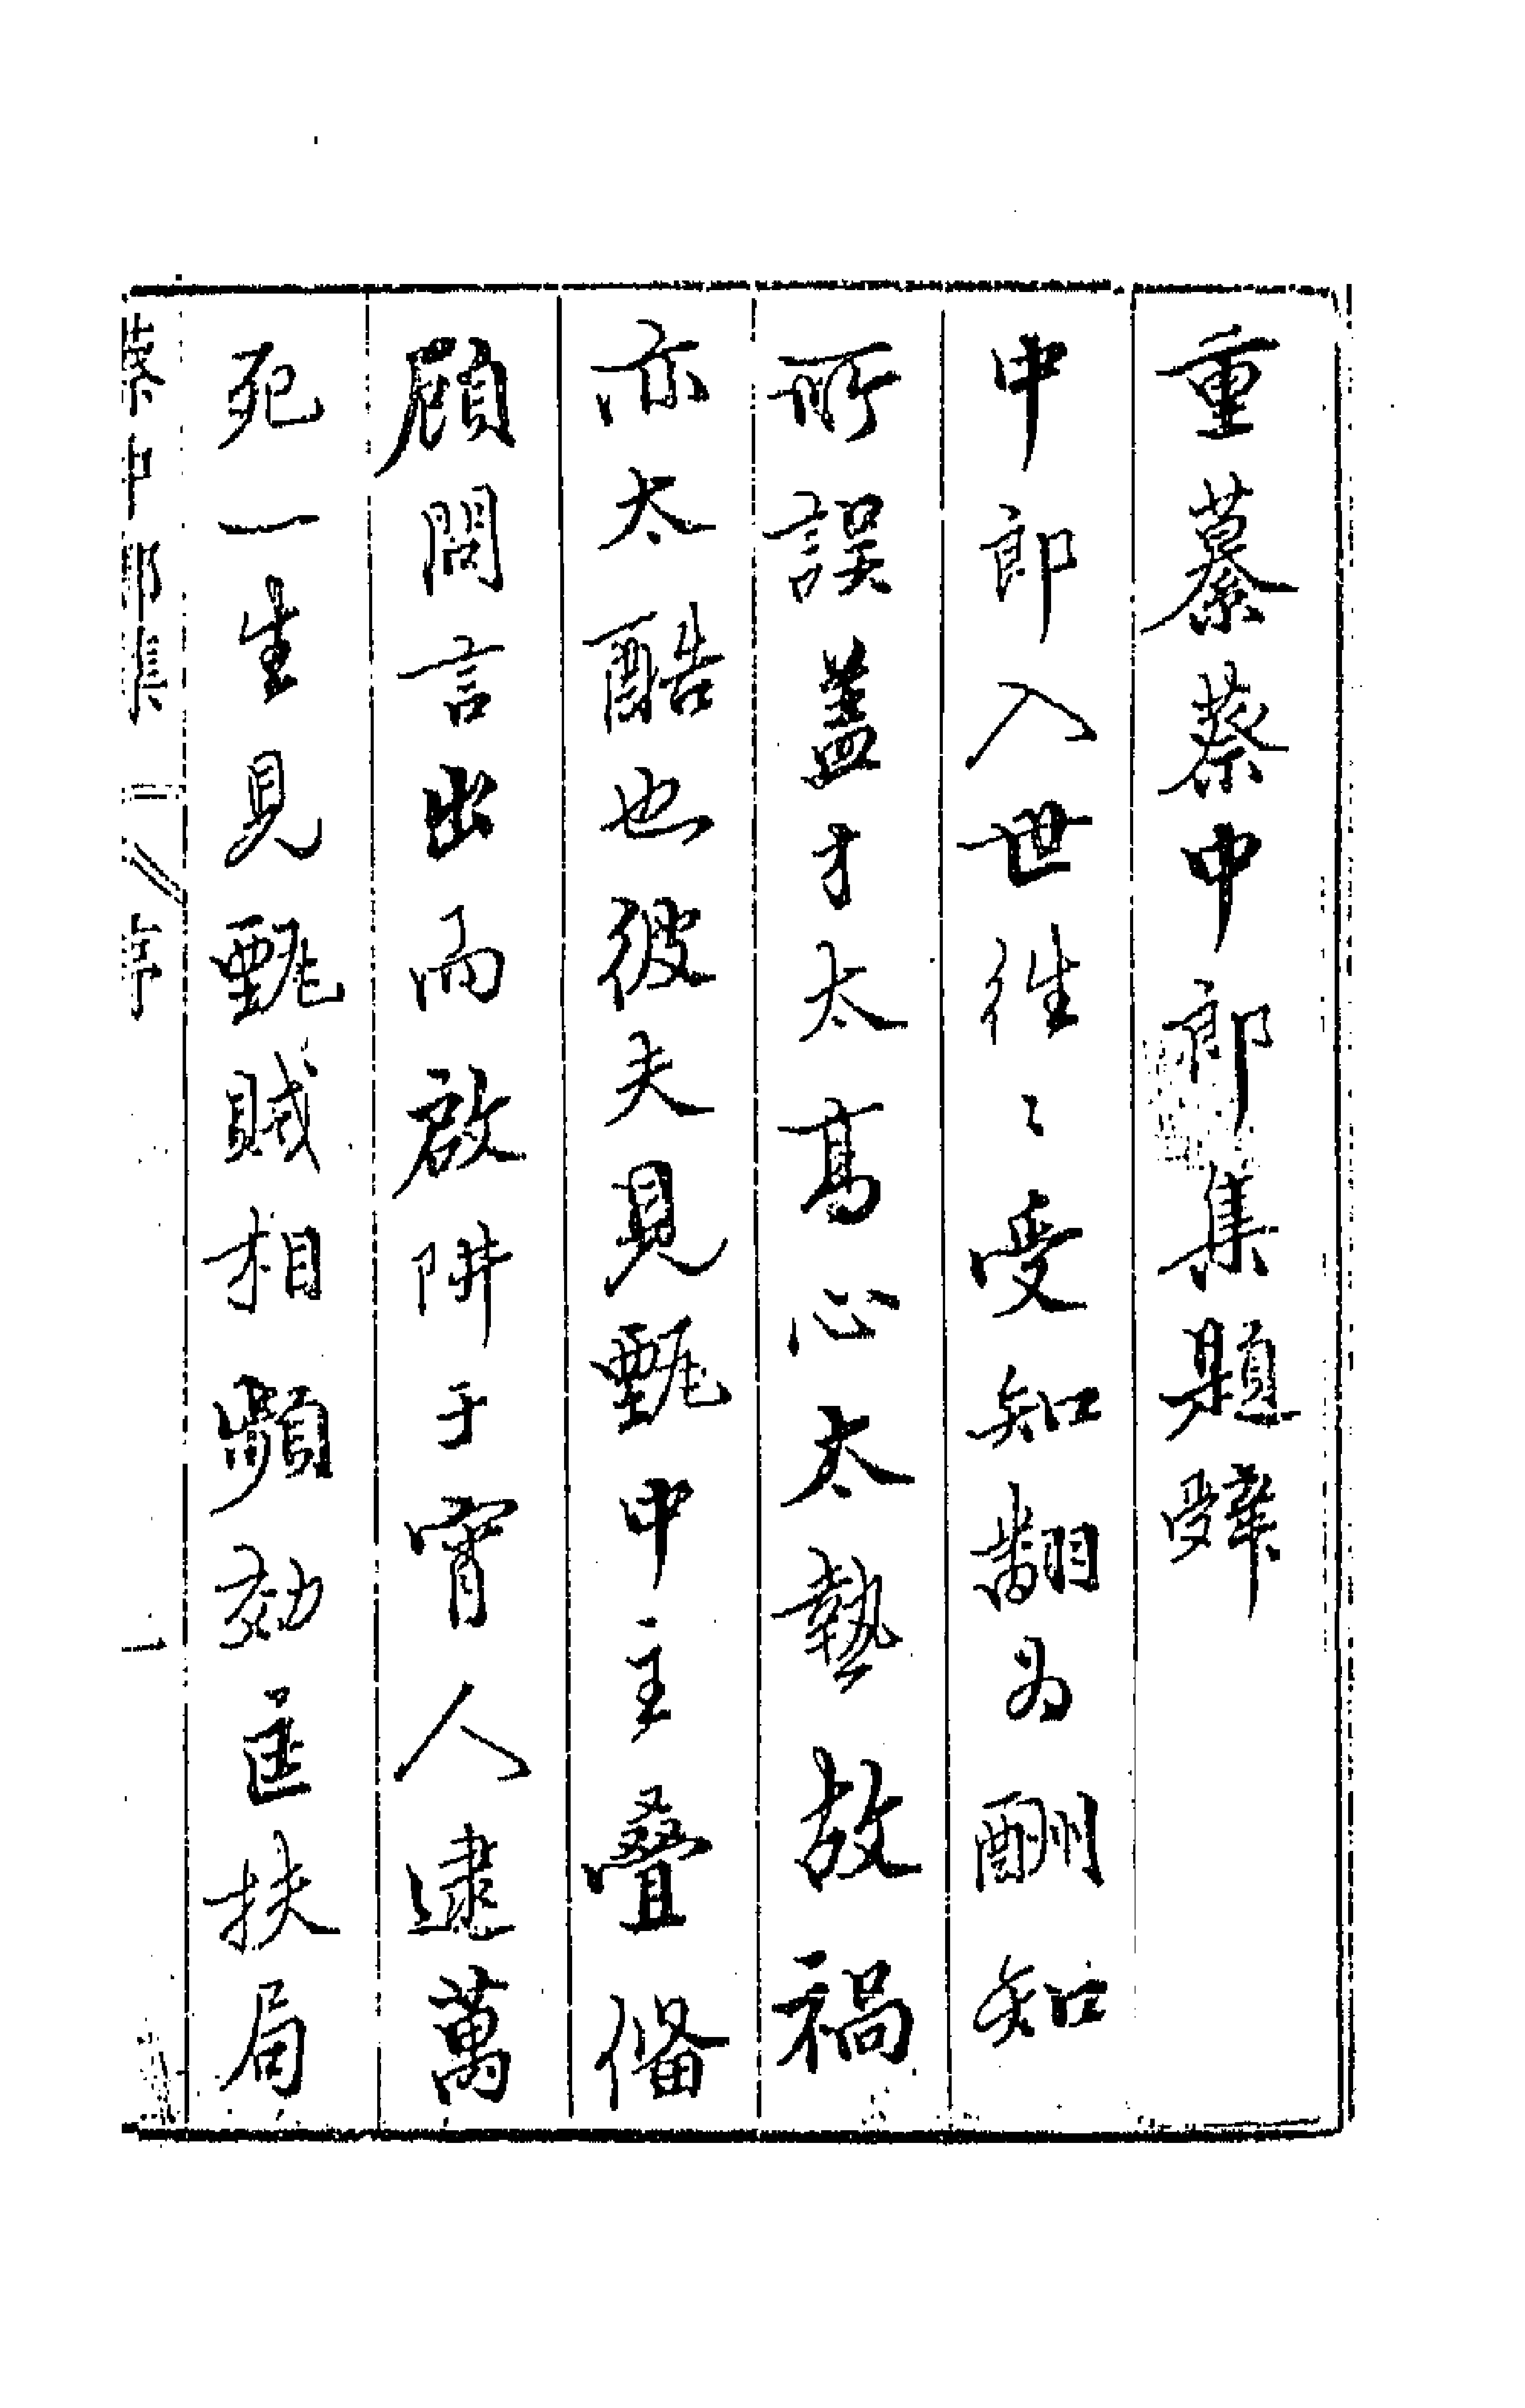 重纂蔡中郎集題辤
中郎入世往〻受知翻为酬知
所誤盖才太高心太熱故禍
亦太酷也彼夫見甄中主疊俻
顧問言出而啟阱于宵人逮萬
死一生見甄賊相頻効匡扶局
蔡中郎集 序 一